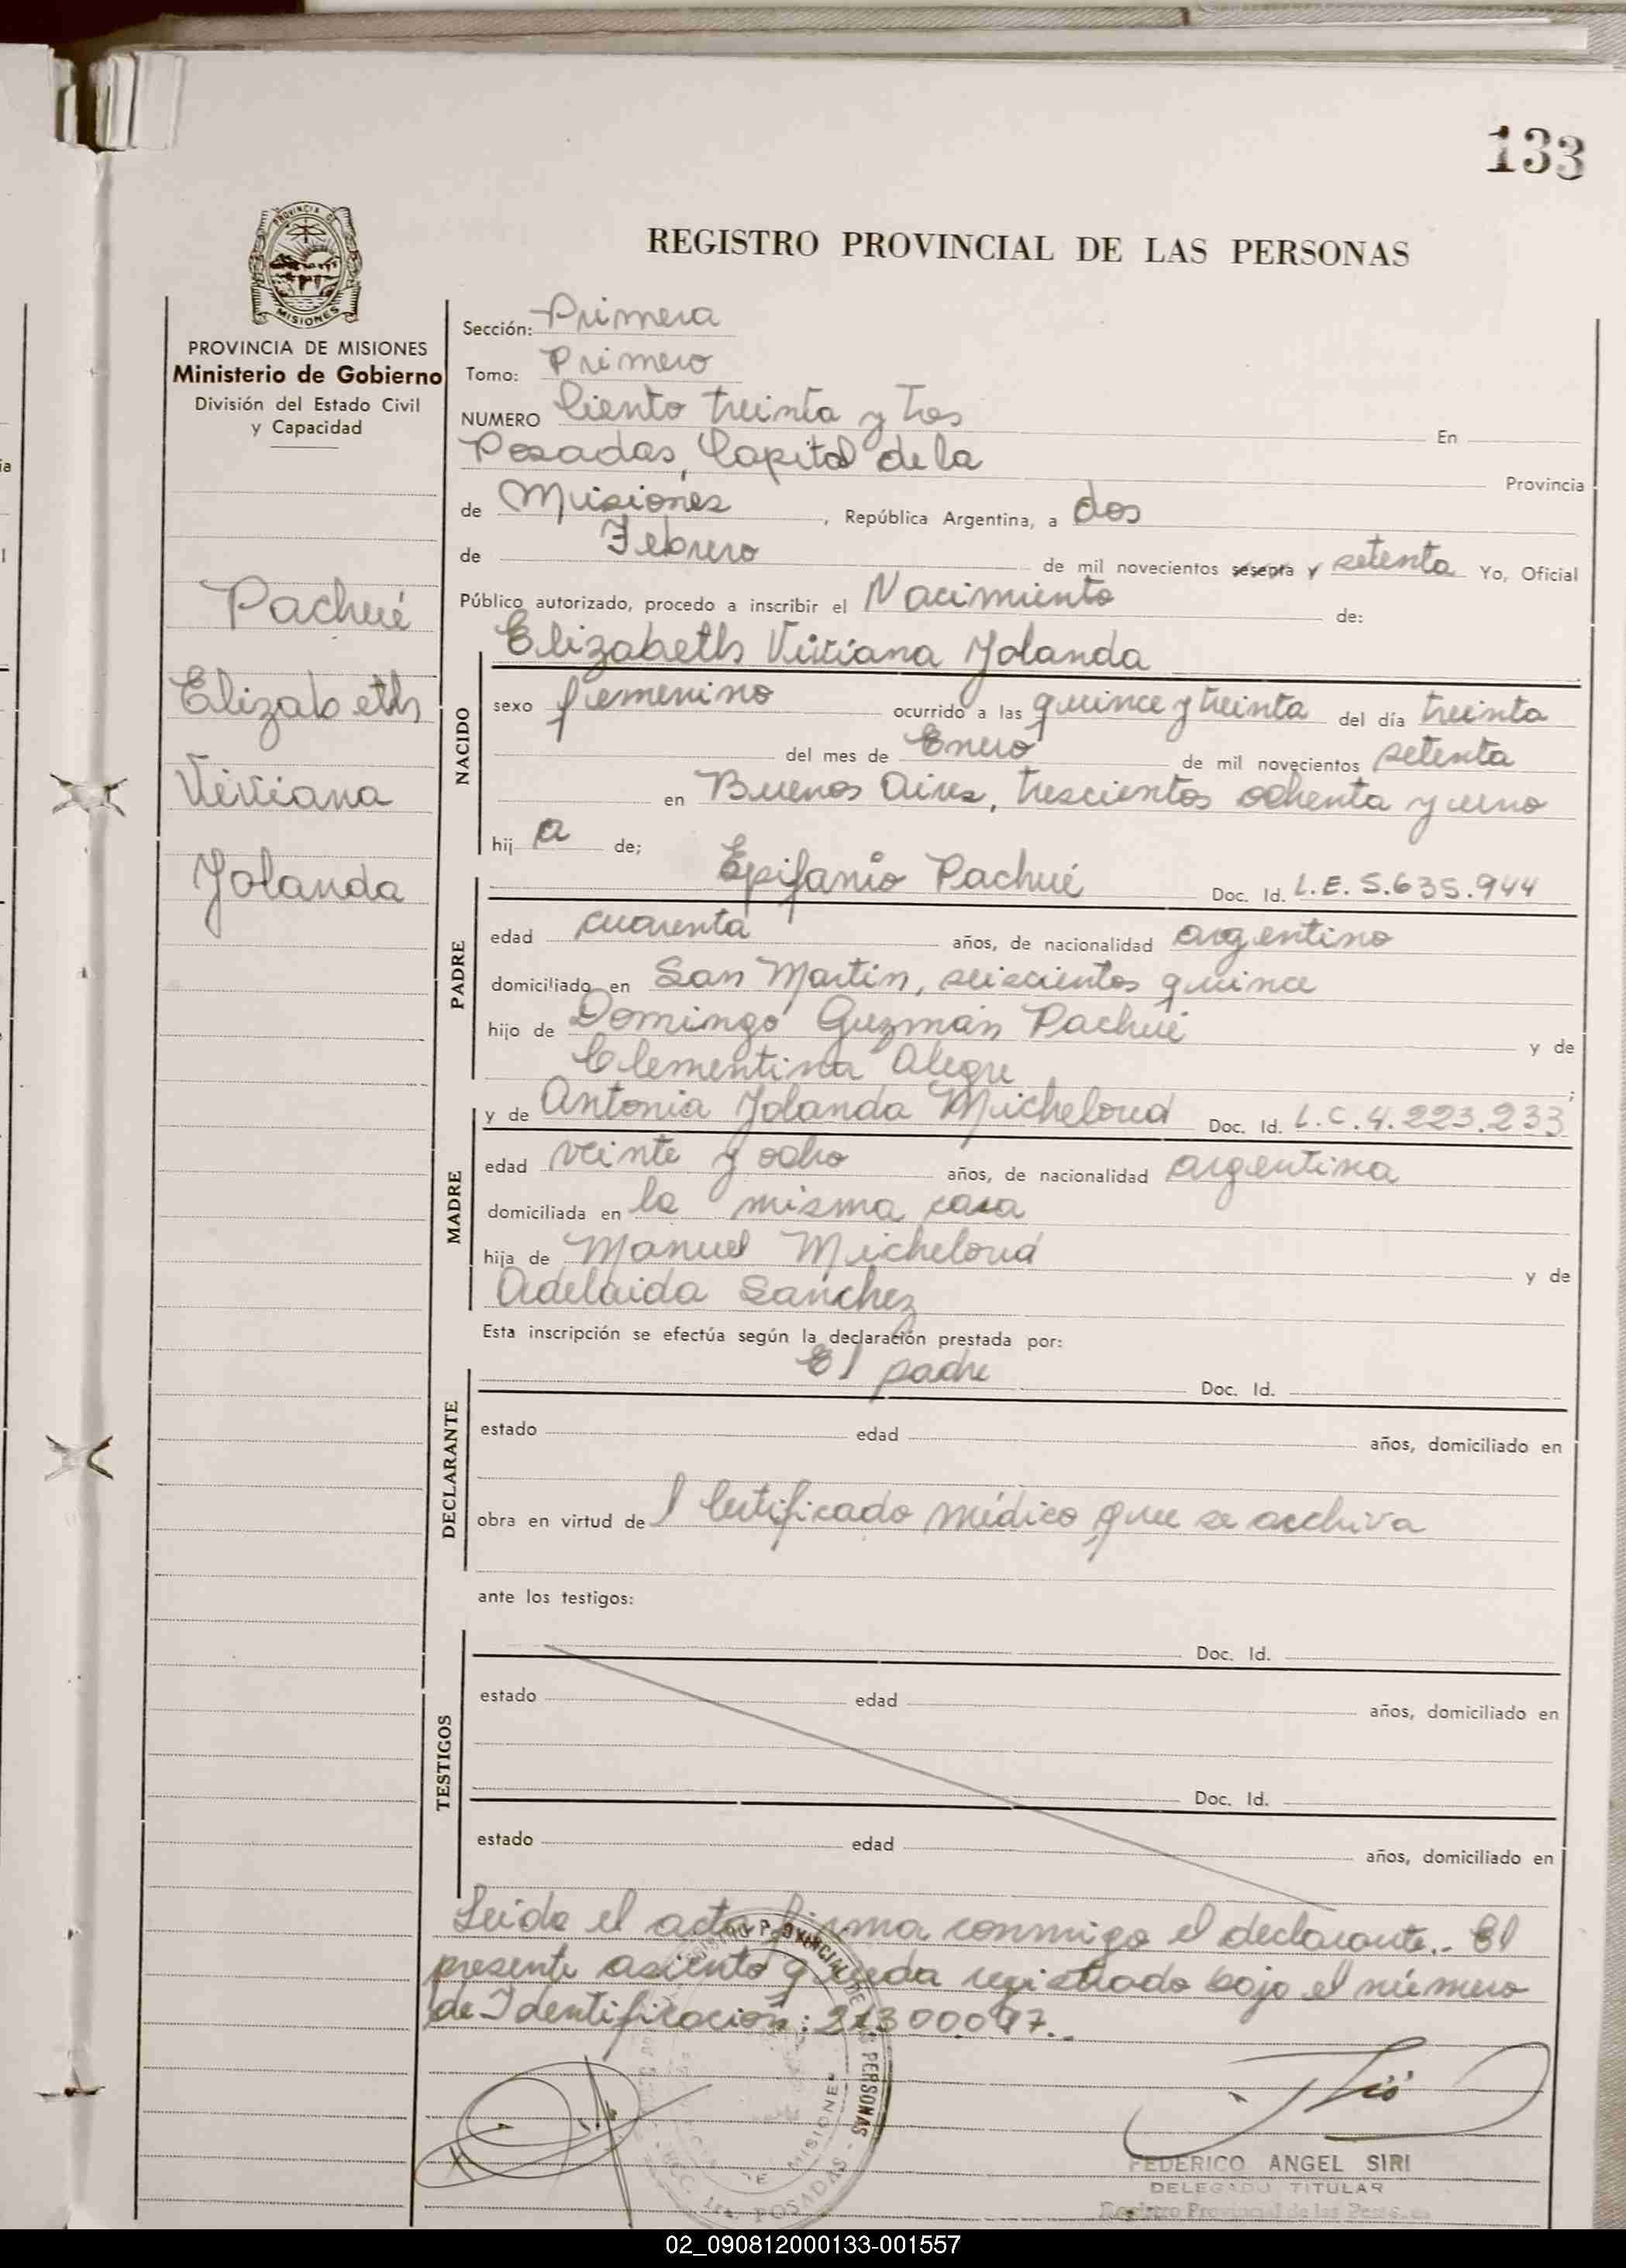 133
REGISTRO PROVINCIAL DE LAS PERSONAS
PROVINCIA DE MISIONES
Ministerio de Gobierno
División del Estado Civil
y Capacidad
Pachué
Elizabeth
Viviana
Yolanda
Sección: Primera
Tomo: Primero
NUMERO Ciento treinta y tres En
Posadas, Capital de la Provincia
de Misiones, República Argentina, a dos
de Febrero de mil novecientos sesenta y setenta Yo, Oficial
Público autorizado, procedo a inscribir el Nacimiento de:
Elizabeth Viviana Yolanda
NACIDO
sexo femenino ocurrido a las quince y treinta del día treinta
del mes de Enero de mil novecientos setenta
en Buenos Aires, trescientos ochenta y uno
hij a de;
Epifanio Pachué Doc. Id. L.E. 5.635.944
PADRE
edad cuarenta años, de nacionalidad argentino
domiciliado en San Martin, seiscientos quince
hijo de Domingo Guzmán Pachué y de
Clementina Alegre ;
y de Antonia Yolanda Micheloud Doc. Id. L.C. 4.223.233
MADRE
edad veinte y ocho años, de nacionalidad argentina
domiciliada en la misma casa
hija de Manuel Micheloud y de
Adelaida Sanchez
Esta inscripción se efectúa según la declaración prestada por:
El padre Doc. Id.
DECLARANTE
estado edad años, domiciliado en
obra en virtud de l Certificado médico que se archiva
ante los testigos:
Doc. Id.
TESTIGOS
estado edad años, domiciliado en
Doc. Id.
estado edad años, domiciliado en
Leida el acta firma conmigo el declarante.- El
presente asiento queda registrado bajo el número
de Identificación: 21300097.-
FEDERICO ANGEL SIRI
DELEGADO TITULAR
Registro Provincial de las Personas
02_090812000133-001557